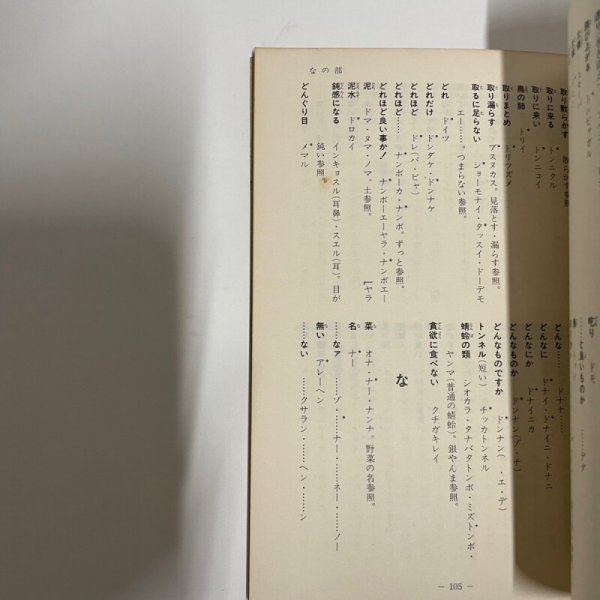 なの部
取り散らかす 散らかす参照。
取りに来る トンニクル
取りに来い トンニコイ
鳥の肺 トリイ
取りまとめ トリツズメ
取り漏らす アスヌカス。見落とす・漏らす参照。
取るに足らない ショーモナイ・タッスイ・ドーデモ
エー……。つまらない参照。
どれ ドイツ
どれだけ ドンダケ・ドンナケ
どれほど ドレ(バ・ビャ)
どれほど…… ナンボーカ・ナンボ。ずっと参照。
どれほど良い事か! ナンボーエーヤラ・ナンボエー
[ヤラ
泥 ドマ・ヌマ・ノマ。土参照。
泥水 ドロカイ
鈍感になる インキョスル(耳鼻)・スエル(耳)。目が
鈍い参照。
どんぐり目 メマル
どんな…… ドナナ……
どんなに ドナイ・ドナイニ・ドナニ
どんなにか ドナイニカ
どんなものか ドンナン(ア・ナ)
どんなものですか ドンナン( ・エ・デ)
トンネル(短い) チッカトンネル
蜻蛉の類 シオカラ・タナバタトンボ・ミズトンボ・
ヤンマ(普通の蜻蛉)。銀やんま参照。
貪欲に食べない クチガキレイ
な
菜 オナ・ナー・ナンナ。野菜の名参照。
名 ナー
……なァ ……ゾ・……ナー・……ネー・……ノー
無い アレーヘン
……ない ……クサラン・……ヘン・……ン
― 105 ―